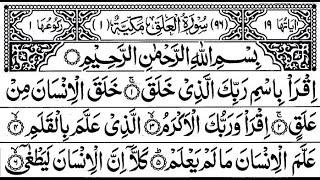 اٰيَاتُهَا ١٩ (٩٦) سُوْرَةُ الْعَلَقِ مَكِّيَّةٌ (١) رُكُوْعُهَا ١
بِسْمِ اللّٰهِ الرَّحْمٰنِ الرَّحِيْمِ
اِقْرَاْ بِاسْمِ رَبِّكَ الَّذِيْ خَلَقَ ۝١ خَلَقَ الْاِنْسَانَ مِنْ
عَلَقٍ ۝٢ اِقْرَاْ وَرَبُّكَ الْاَكْرَمُ ۝٣ الَّذِيْ عَلَّمَ بِالْقَلَمِ ۝٤
عَلَّمَ الْاِنْسَانَ مَا لَمْ يَعْلَمْ ۝٥ كَلَّاۤ اِنَّ الْاِنْسَانَ لَيَطْغٰۤى ۝٦